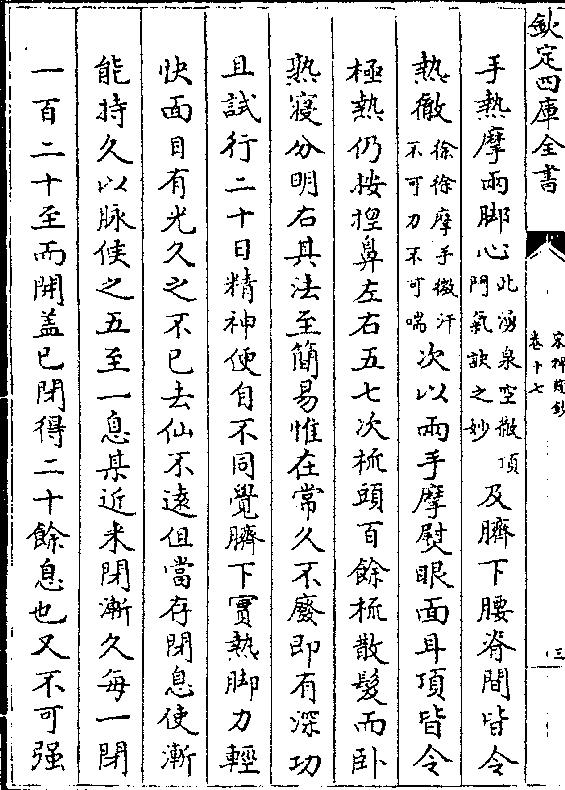 欽定四庫全書
宋稗類鈔
卷十七
三
手熱摩兩脚心此湧泉空徹頂門氣訣之妙及臍下腰脊間皆令
熱徹徐徐摩手微汗不可力不可喘次以兩手摩熨眼面耳項皆令
極熱仍按捏鼻左右五七次梳頭百餘梳散髮而卧
熟寢分明右其法至簡易惟在常久不廢即有深功
且試行二十日精神便自不同覺臍下實熱脚力輕
快面目有光久之不已去仙不遠但當存閉息使漸
能持久以脉候之五至一息某近来閉漸久每一閉
一百二十至而開盖已閉得二十餘息也又不可强